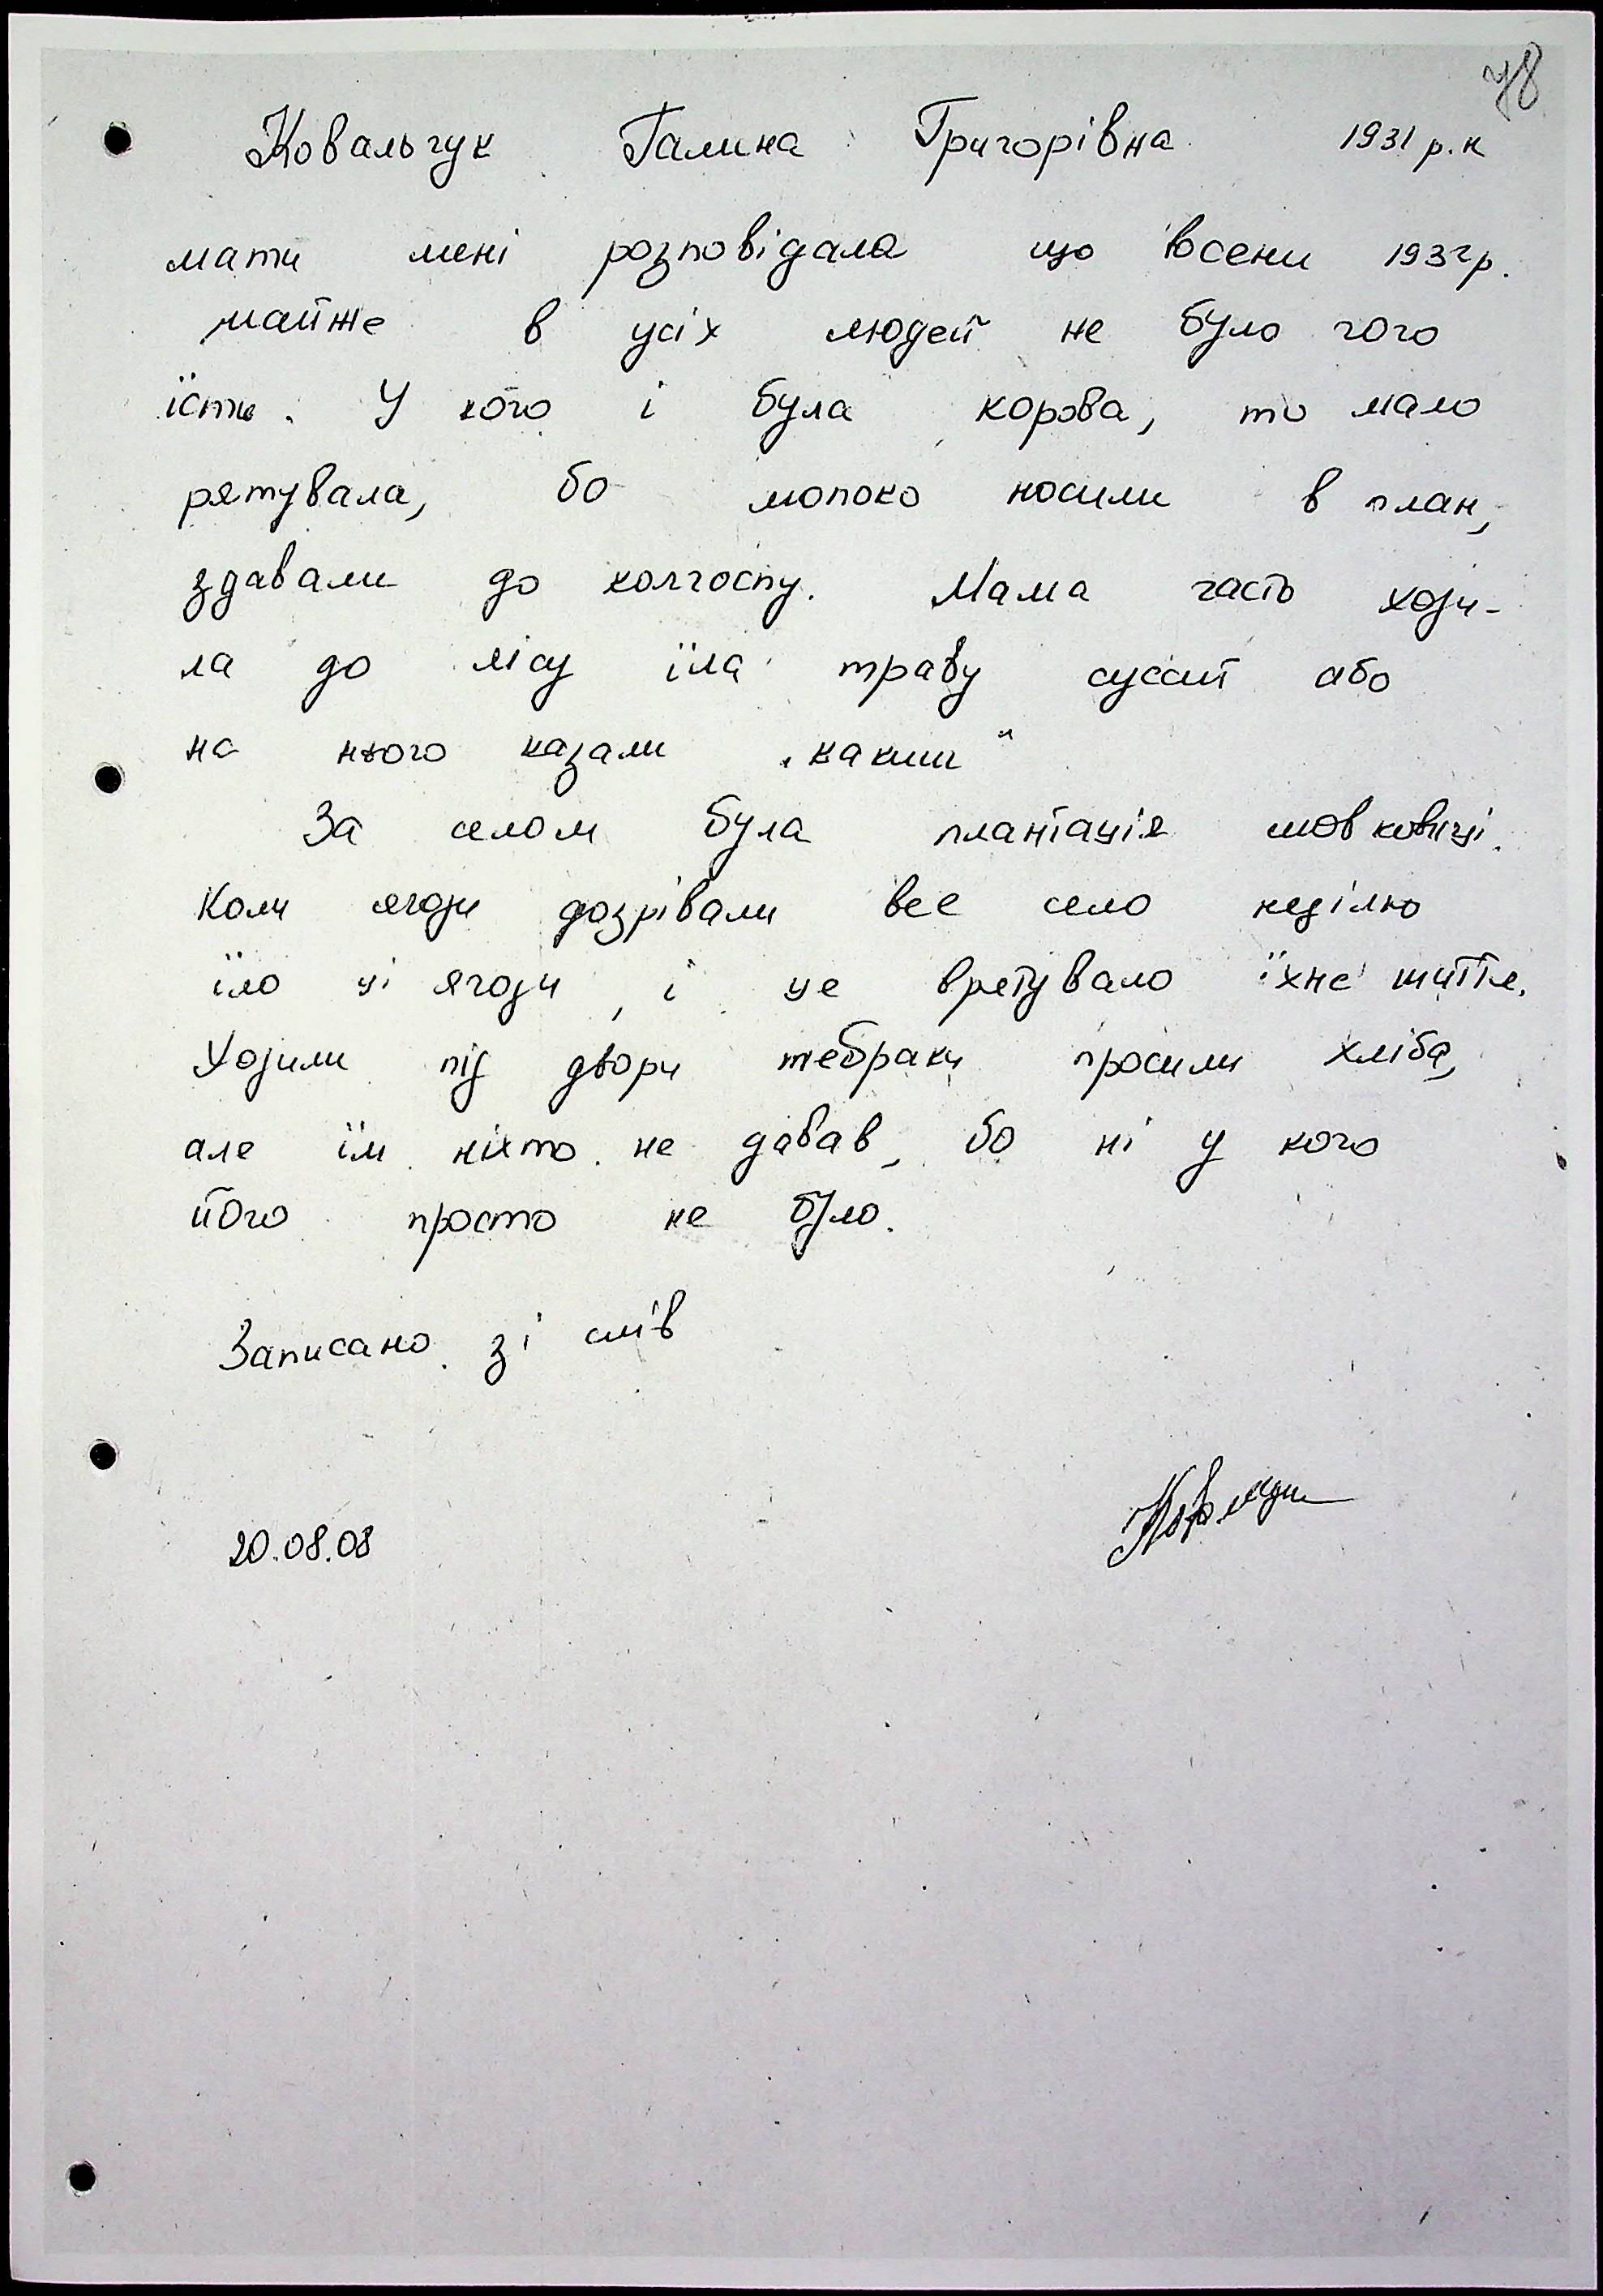 78
Ковальчук Галина Григорівна 1931 р.н
мати мені розповідала що восени 1932р.
майже в усіх людей не було чого
їсти. У кого і була корова, то мало
рятувала, бо молоко носили в план,
здавали до колгоспу. Мама часто ходи-
ла до лісу їла траву сусай або
на нього казали „какиш"
За селом була плантація шовковиці.
Коли ягоди дозрівали все село неділю
їло ці ягоди, і це врятувало їхнє життя.
Ходили під двори жебраки просили хліба,
але їм ніхто не давав, бо ні у кого
його просто не було.
Записано зі слів
20.08.08